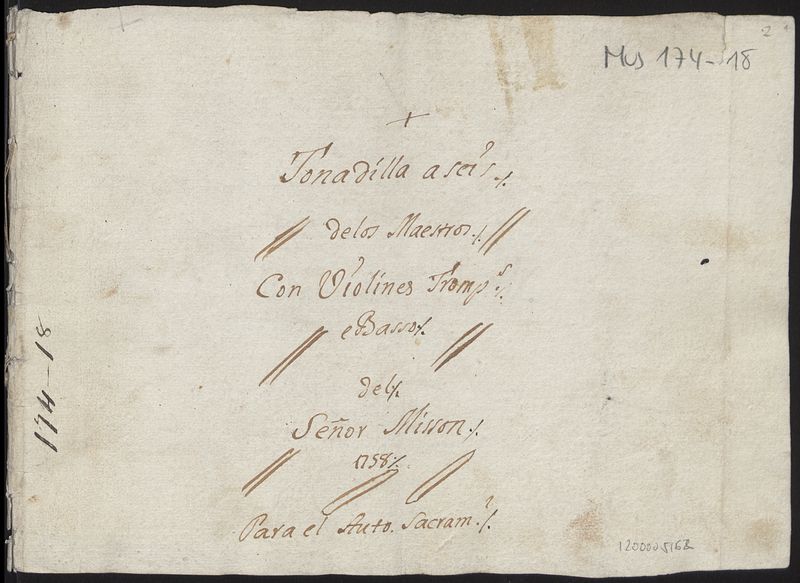 2
Mus 174-18
+
Tonadilla a seis ·/.
// de los Maestros ·/. //
Con Violines Tromp.s ·/.
// e Basso /. //
del /.
Señor Misson ·/.
1758 /.
Para el Auto. Sacram.l ·/.
174-18
1200005162